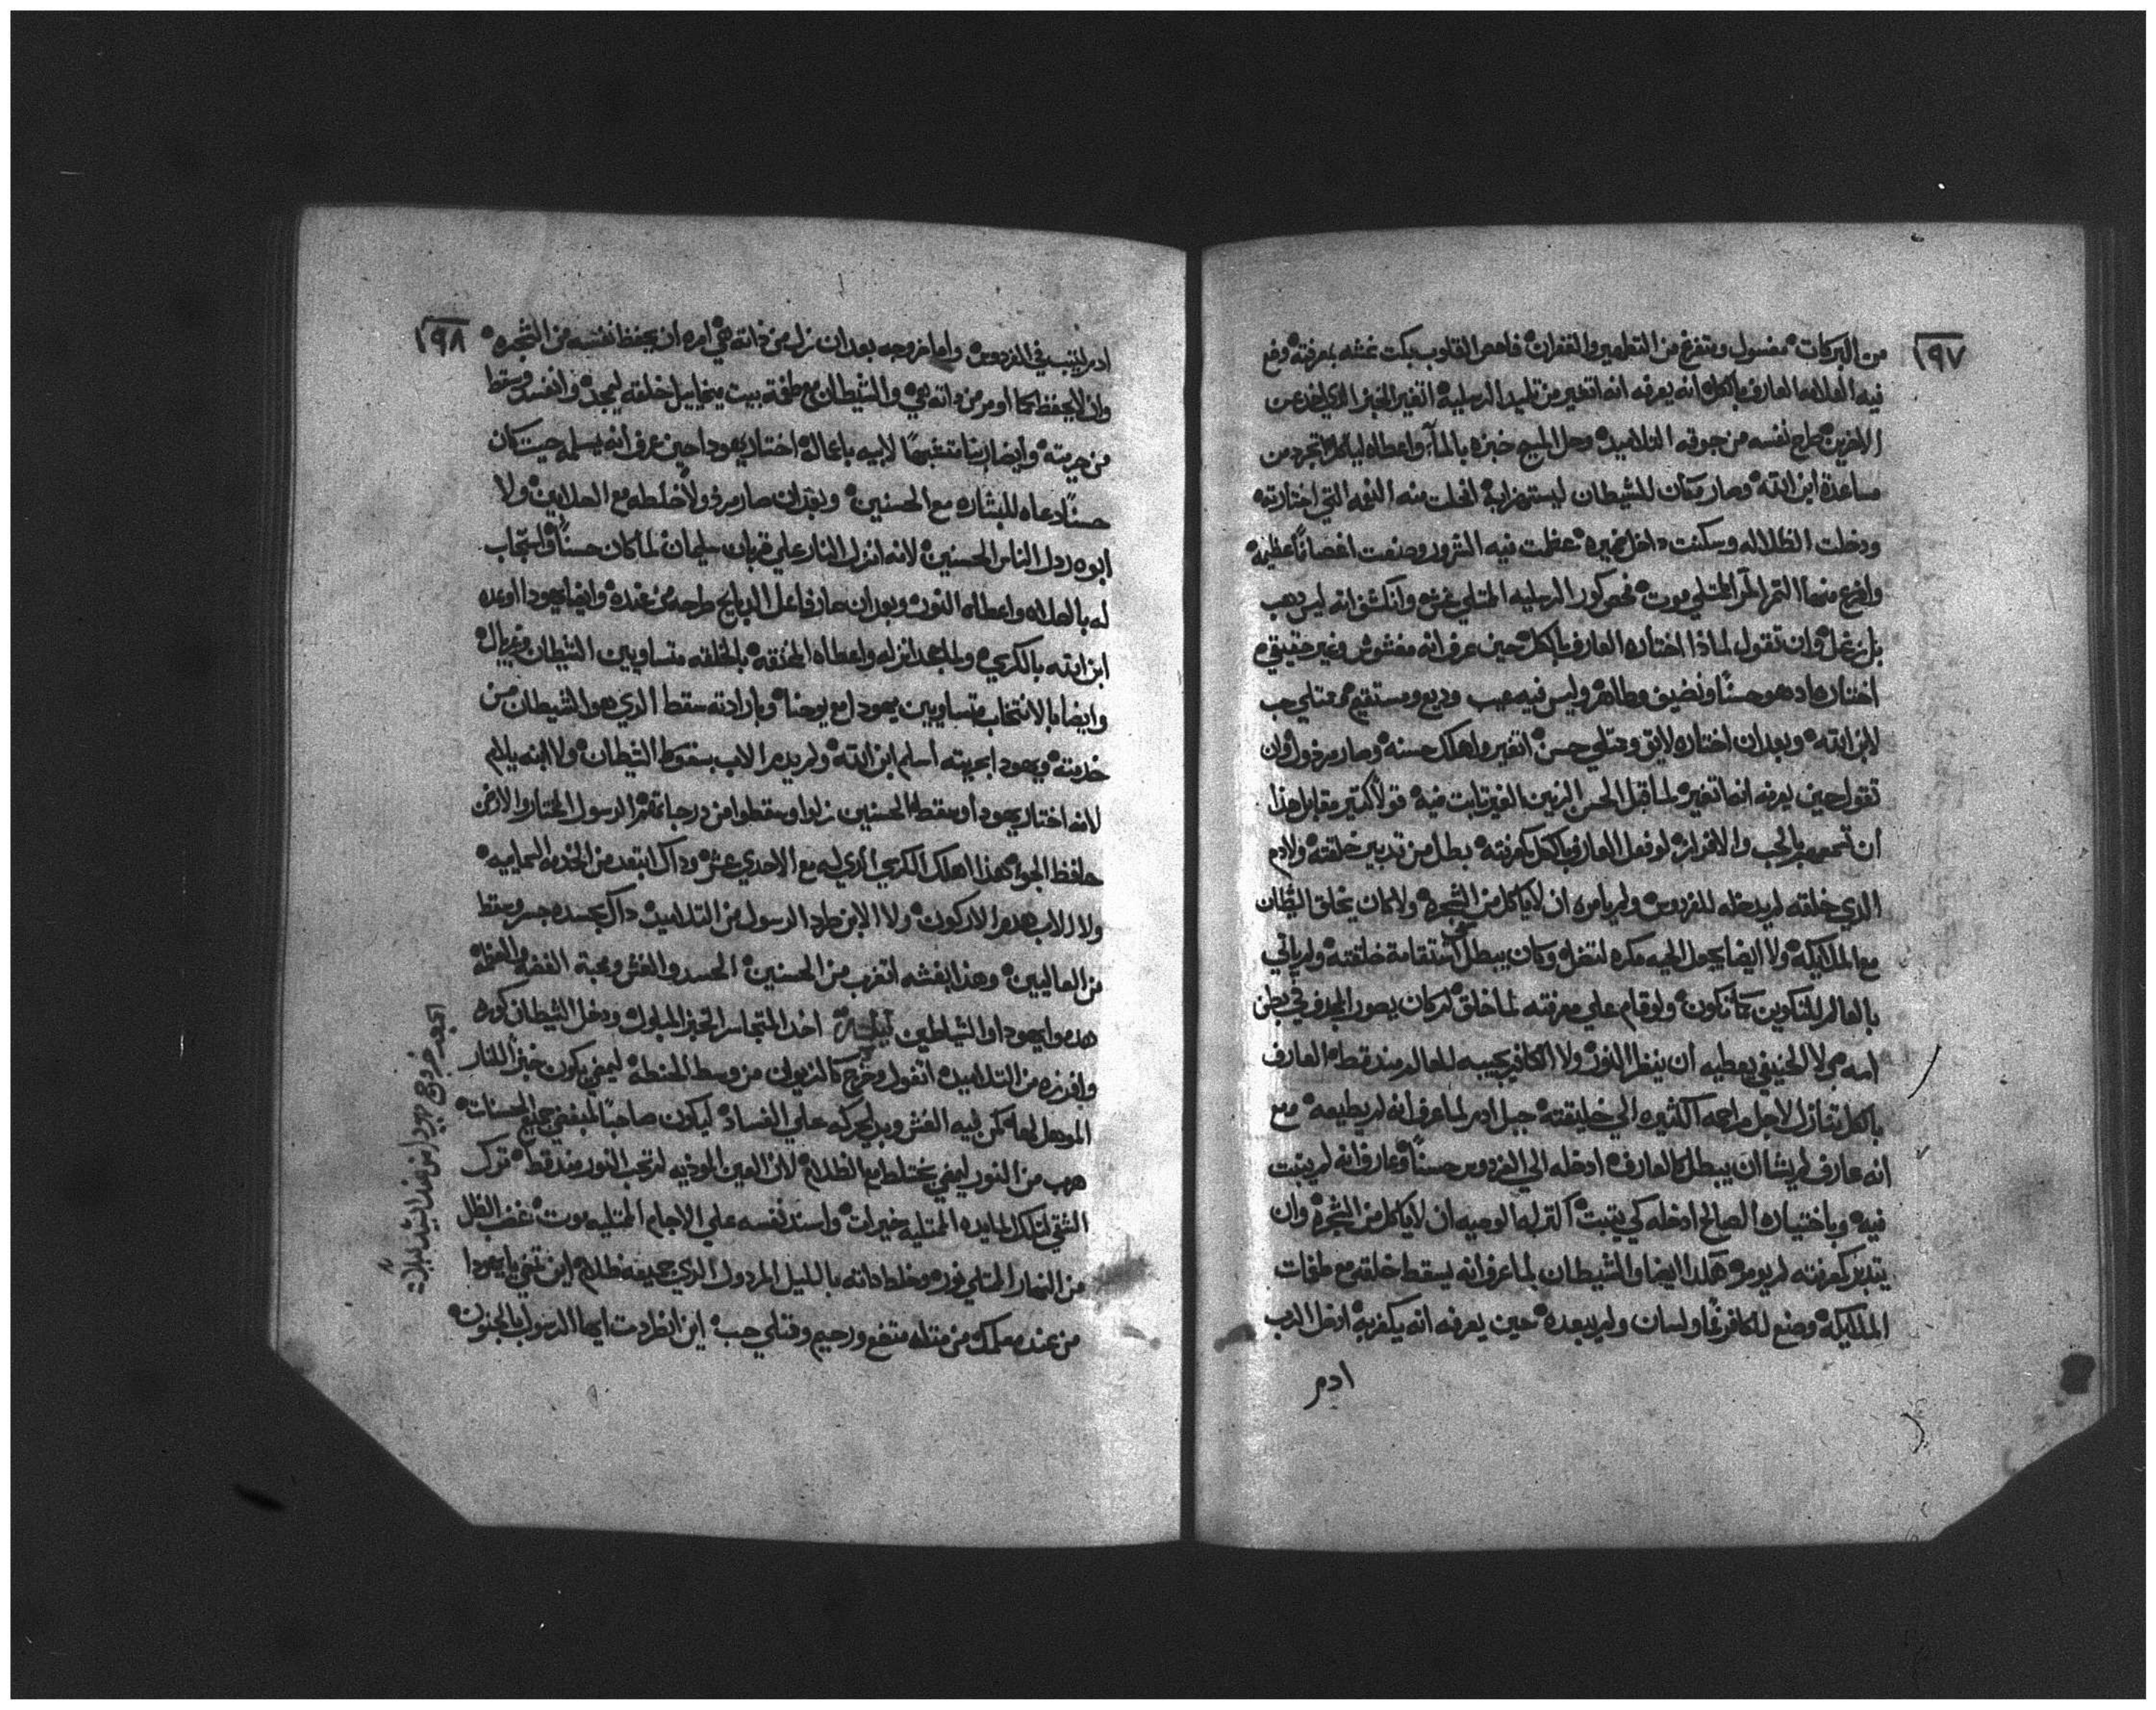 ١٩٧
من البركات مغسول ومتفرغ من التطهير والغفران فاحص القلوب بكت غشه بمعرفته وضع
فيه العلامه العارف بالكل انه يعرفه انه اتغير من تلميد الرسليه اتغير الخبز الذي اخد عن
الاخرين طرح نفسه من جوقه التلاميد وحل المسيح خبزه بالمآ واعطاه لياكل اتجرد من
مساعدة ابن الله وصار مكان للشيطان ليستهزا به انحلت منه النعمه التي اختارته
ودخلت الظلاله وسكنت داخل ضميره عظمت فيه الشرور وصنعت اغصاناً عظيمه
واخرج منها التمر المر الممتلي موت فحص كور الرسليه الممتلي غش وانكشف انه ليس دهب
بل زغل وان تقول لماذا اختاره العارف بالكل حين عرف انه مغشوش وغير حقيقي
اختاره اد هو حسناً ونضيف وطاهر وليس فيه عيب وديع ومستقيم ممتلي حب
لابن الله وبعد ان اختاره لايق وممتلي حسن اتغير واهلك حسنه وصار مردول وان
تقول حين يعرفه انه اتغير لما قبل الحسن الزين الغير تابت فيه قولاً كتير مقابل هذا
ان تسمعه بالحب والافراز لو فعل العارف بالكل كمعرفته بطل من تدبير خلقته ولادم
الذي خلقه لم يدخله للفردوس ولم يامره ان لا ياكل من الشجره ولا كان يخلق الشيطان
مع الملايكه ولا ايضا يحول الحيه مكره لتضل وكان يبطل استقامة خلقته ولم ياتي
بالعالم للتكوين كما تكون ولو قام علي معرفته لما خلق لم كان يصور المجدف في بطن
امه ولا الحنيفي يعطيه ان ينظر النور ولا الكافر يجيبه للعالم مند قط العارف
بالكل تنازل لاجل مراحمه الكثيره الي خليقته جبل ادم لما عرف انه لم يطيعه ومع
انه عارف لم يشا ان يبطل كالعارف ادخله الي الفردوس حسناً وعارف انه لم يتبت
فيه وباختياره الصالح ادخله كي يتبت اكتر له الوصيه ان لا ياكل من الشجره وان
يتدبر كمعرفته لم يومره هكدا ايضا والشيطان لما عرف انه يسقط خلقه مع طغمات
الملايكه وصنع للكافر فماً ولسان ولم يبعده حين يعرفه انه يكفر به ادخل الرب
ادم
١٩٨
ادم ليتبت في الفردوس واما خروجه بعد ان نزل من ذاته هي امره ان يحفظ نفسه من الشجره
وان لا يحفظ كما اومر من داته هي والشيطان مع طغمة بيت ميخاييل خلقه ليمجد وانفسد وسقط
من مرتبته وايضا ربنا متشبهاً لابيه باعماله اختار يهودا حين عرف انه يسلمه حيت كان
حسناً دعاه للبشاره مع الحسنين وبعد ان صار مردولاً خلطه مع العلايين ولا
ابوه ردل الناس الحسنين لانه انزل النار علي قربان سليمان لما كان حسناً واستجاب
له بالصلاه واعطاه النور وبعد ان صار فاعل الدبايح طرحه من عنده وايضا يهودا اوعده
ابن الله بالكرسي وبالمجد انزله واعطاه المخنقه بالخلقه متساويين الشيطان وغبريال
وايضا بالانتخاب متساويين يهودا مع يوحنا وبارادته سقط الذي هو الشيطان من
خدمته ويهودا بحريته اسلم ابن الله ولم يدم الاب بسقوط الشيطان ولا ابنه يلام
لانه اختار يهودا وسقط الحسنين نزلوا وسقطوا من درجاتهم الرسول المختار والاركن
حافظ الجو هذا اهلك الكرسي الذي له مع الاحدي عشر وداك ابتعد من الخدمه السمايه
ولا الاب هدم الاركون ولا الابن طرد الرسول من التلاميد داك بحسده جسر وسقط
من العاليين وهذا بغشه اتغرب من الحسنين الحسد والغش ومحبة الفضه والعظمه
هدموا يهودا والشياطين اخد المتجاسر الخبز المبلول ودخل الشيطان كوره
وافرزه من التلاميد اتغول وخرج كالزيوان من وسط الحنطه ليمضي يكون خبزاً للنار
المرسل لعله كمن ليه الغش وبدي يحركه علي الفساد ليكون صاحباً لمبغضي جميع الحسنات
هرب من النور ليمضي يختلط مع الظلام لان العين الموذيه لم تحب النور مند قط ترك
الشقي لتلك المايده الممتليه خيرات واسند نفسه علي الاجام الممتليه موت غضب الظل
من النهار الممتلي نور وخلط داته بالليل المردول الذي جميعه ظلام اين تمضي يا يهودا
من عند معلمك من متله متضع ورحيم وممتلي حب اين انطردت ايها الرسول بالجنون